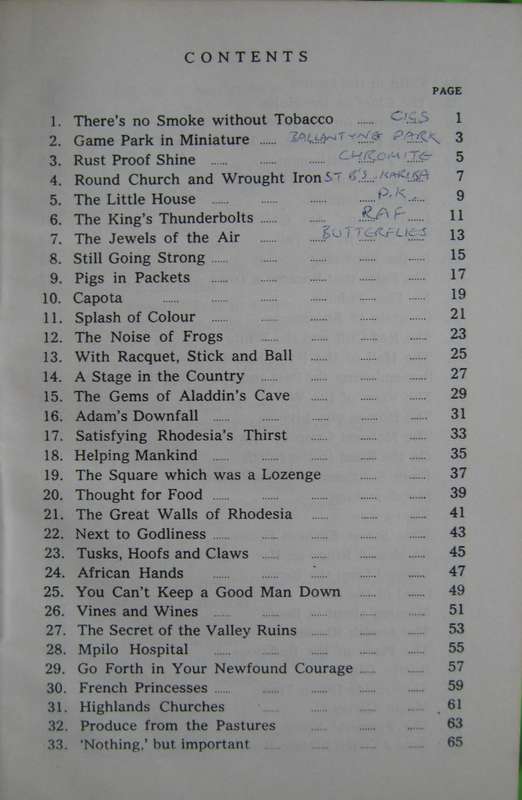 CONTENTS
PAGE
1. There's no Smoke without Tobacco ...... CIGS 1
2. Game Park in Miniature ...... BALLANTYNE PARK 3
3. Rust Proof Shine ...... ...... CHROMITE 5
4. Round Church and Wrought Iron ST B'S KARIBA 7
5. The Little House ...... ...... ...... P.K. 9
6. The King's Thunderbolts ...... ...... RAF ...... 11
7. The Jewels of the Air ...... BUTTERFLIES 13
8. Still Going Strong ...... ...... ...... ...... ...... 15
9. Pigs in Packets ...... ...... ...... ...... ...... 17
10. Capota ...... ...... ...... ...... ...... 19
11. Splash of Colour ...... ...... ...... ...... ...... 21
12. The Noise of Frogs ...... ...... ...... ...... 23
13. With Racquet, Stick and Ball ...... ...... ...... 25
14. A Stage in the Country ...... ...... ...... ...... 27
15. The Gems of Aladdin's Cave ...... ...... ...... 29
16. Adam's Downfall ...... ...... ...... ...... ...... 31
17. Satisfying Rhodesia's Thirst ...... ...... ...... 33
18. Helping Mankind ...... ...... ...... ...... ...... 35
19. The Square which was a Lozenge ...... ...... 37
20. Thought for Food ...... ...... ...... ...... ...... 39
21. The Great Walls of Rhodesia ...... ...... ...... 41
22. Next to Godliness ...... ...... ...... ...... ...... 43
23. Tusks, Hoofs and Claws ...... ...... ...... ...... 45
24. African Hands ...... ...... ...... ...... ...... 47
25. You Can't Keep a Good Man Down ...... ...... 49
26. Vines and Wines ...... ...... ...... ...... ...... 51
27. The Secret of the Valley Ruins ...... ...... ...... 53
28. Mpilo Hospital ...... ...... ...... ...... ...... 55
29. Go Forth in Your Newfound Courage ...... ...... 57
30. French Princesses ...... ...... ...... ...... ...... 59
31. Highlands Churches ...... ...... ...... ...... 61
32. Produce from the Pastures ...... ...... ...... 63
33. 'Nothing,' but important ...... ...... ...... ...... 65